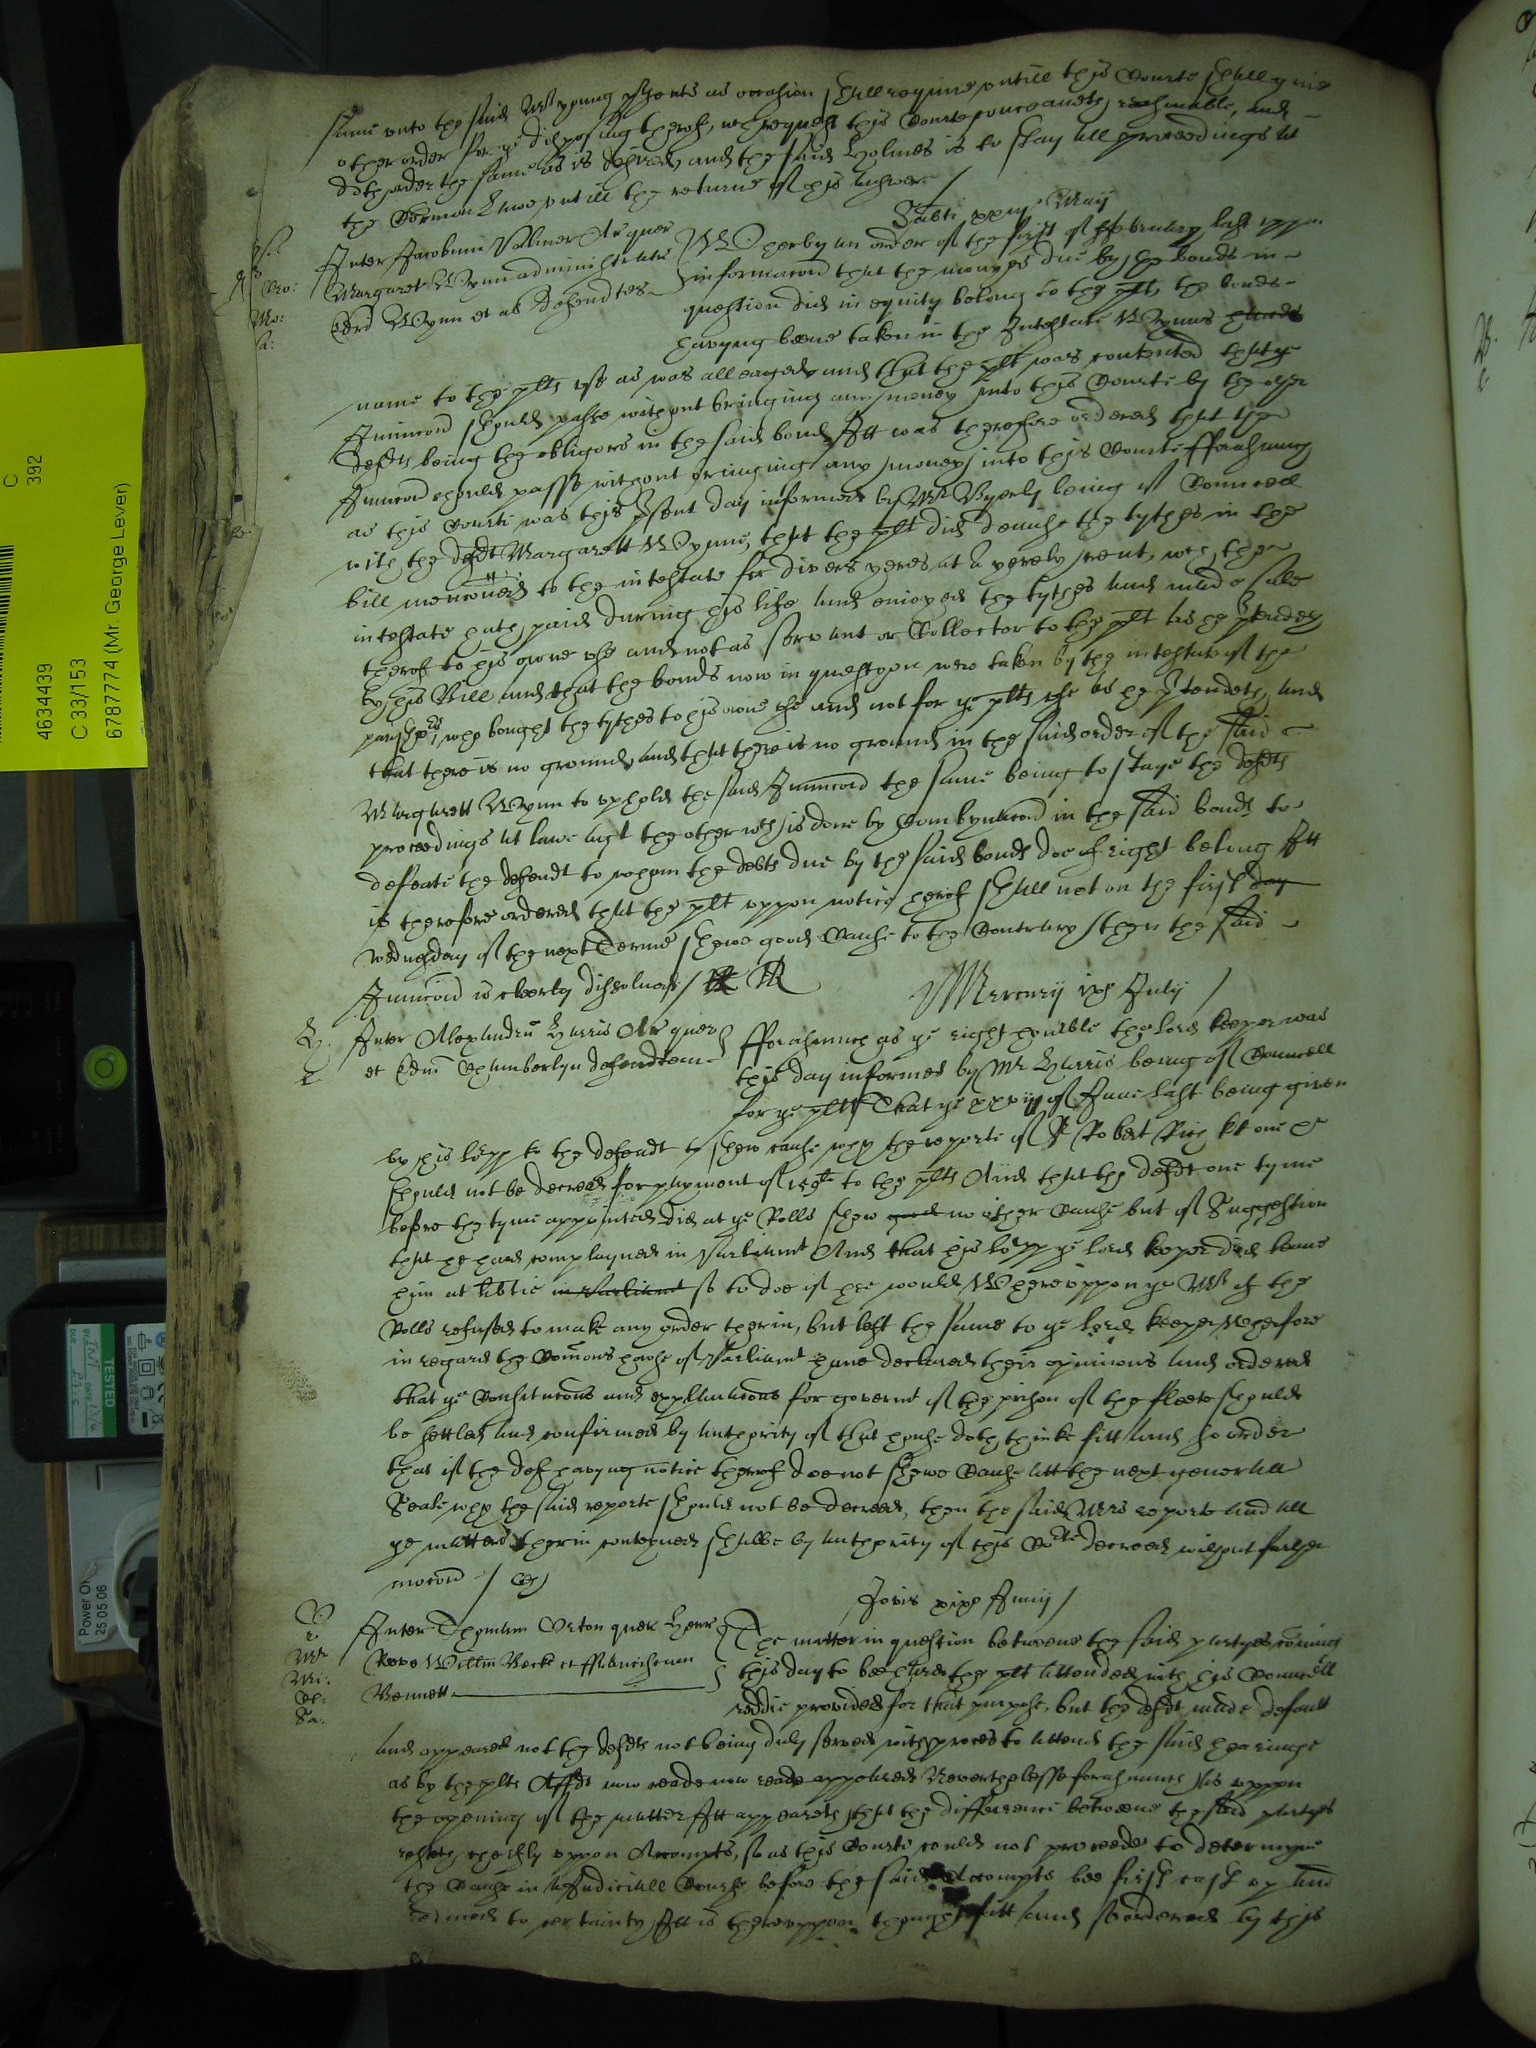 same unto the said Mr young presents as occasion shall require untill this Courte shall give
other order for ye disposing thereof, wch request this Courte conceaveth reasonable, and
doth order the same as is desired, and the said Holmes is to stay all proceedings at
the Comon Lawe untill the returne of his answere /
Sabti May
Inter Jacobum quer
Margaret Wynn administratr
Edri Wynn et al defendtes
Wherby an order of the first of ffebruary last uppon
informacon that the moneyes due by the bonds in
question did in equity belong to the plt, the bonds
having beene taken in the Intestate Wynns
name to the plts use as was alleaged and that the plt was contented that ye
Iniuncon should passe without bringing any money into this Courte by the other
defts being the obligors in the said bonds Itt was therefore ordered that the
Iniuncon should passe without bringing any money into this Courte fforasmuch
as this Courte was this present day informed by Mr Byerly being of Councell
with the deft Margarett Wynne, that the plt did demise the tythes in the
bill menconed to the intestate for divers yeres at a yerely rent, wch the
intestate hath paid during his life and enioyed the tythes and made sale
therof to his owne use and not as servant or Collector to the plt as he pretendeth
by his Bill and that the bonds now in question were taken by the intestate of the
parishors, who bought the tythes to his owne use and not for ye plts use as he pretendeth, and
that there is no ground, and that there is no ground in the said order of the said
Margarett Wynn to uphold the said Iniuncon the same being to staye the defts
proceedings at lawe agt the other wch is done by Combynacon in the said bonds to
defeate the defendt to whom the debts due by the said bonds doe of right belong Itt
is therefore ordered that the plt uppon notice hereof shall not on the first day
wednesday of the next Terme shewe good Cause to the Contrary then the said
Iniuncon is cleerly dissolved /
Mercurij ixo Julij /
Inter Alexandru Harris Ar quer
et Edm Chamberlyn defendtem
fforasmuch as ye right honoble the lord keeper was
this day informed by Mr Harris being of Councell
for ye plts That ye of June last being given
by his lopp to the defendt to shew cause why the reporte of Sr Robert Rich kt one ye
should not be decreed for payment of to the plts And that the deft one tyme
before the tyme appointed did at ye Rolls shew good no other Cause but of Suggestion
that he had complayned in Parliamt And that his lopp ye lord keeper did leave
him at libtie in Parliamt so to doe if hee would Whereuppon ye Mr of the
Rolls refused to make any order therin, but left the same to ye lord keeper Wherefore
in regard the Comons house of Parliamt have declared their opinions and ordered
that ye Constitucons and explanacons for governt of the prison of the fleete should
be settled and confirmed by authority of that house doth thinke fitt and so order
that if the def having notice therof doe not shewe Cause att the next generall
Seale why the said reporte should not be decreed, then the said Mrs reporte and all
ye matters therin conteyned shalbe by authority of this Corte decreed without further
mocon /
Jovis Junij /
Inter Thomam Orton quer Henr
Willm Becke et ffranciscum
Bennett
The matter in question betweene the said partyes coming
this day to bee heard the plt attended with his Councell
reddie provided for that purpose, but the deft made default
and appeared not the defts not being duly served with proces to attend the said hearinge
as by the plts Affdt now reade now reade appeared Neverthelesse forasmuch as uppon
the opening of the matter Itt appeareth that the difference betweene the said partyes
resteth cheifly uppon Accompts, so as this Courte could not proceede to determyne
the Cause in a Judiciall Course before the said Accompts bee first cast up and
reduced to certainty Itt is thereuppon thought fitt and so ordered by this
C
392
4634439
C 33/153
6787774 (Mr. George Lever)
TESTED
Power On
25 05 06